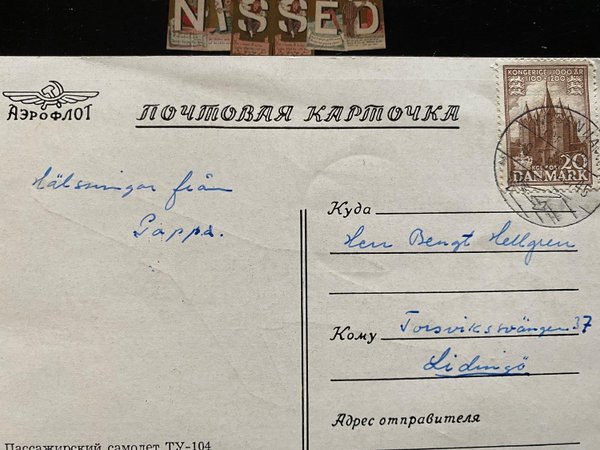 NISSED
АЭРОФЛОТ
ПОЧТОВАЯ КАРТОЧКА
KONGERIGE I 1000 ÅR
20
DANMARK
Hälsningar från
Pappa.
Куда
Herr Bengt Hellgren
Кому Torsviksvängen 37
Lidingö
Адрес отправителя
Пассажирский самолет ТУ-104